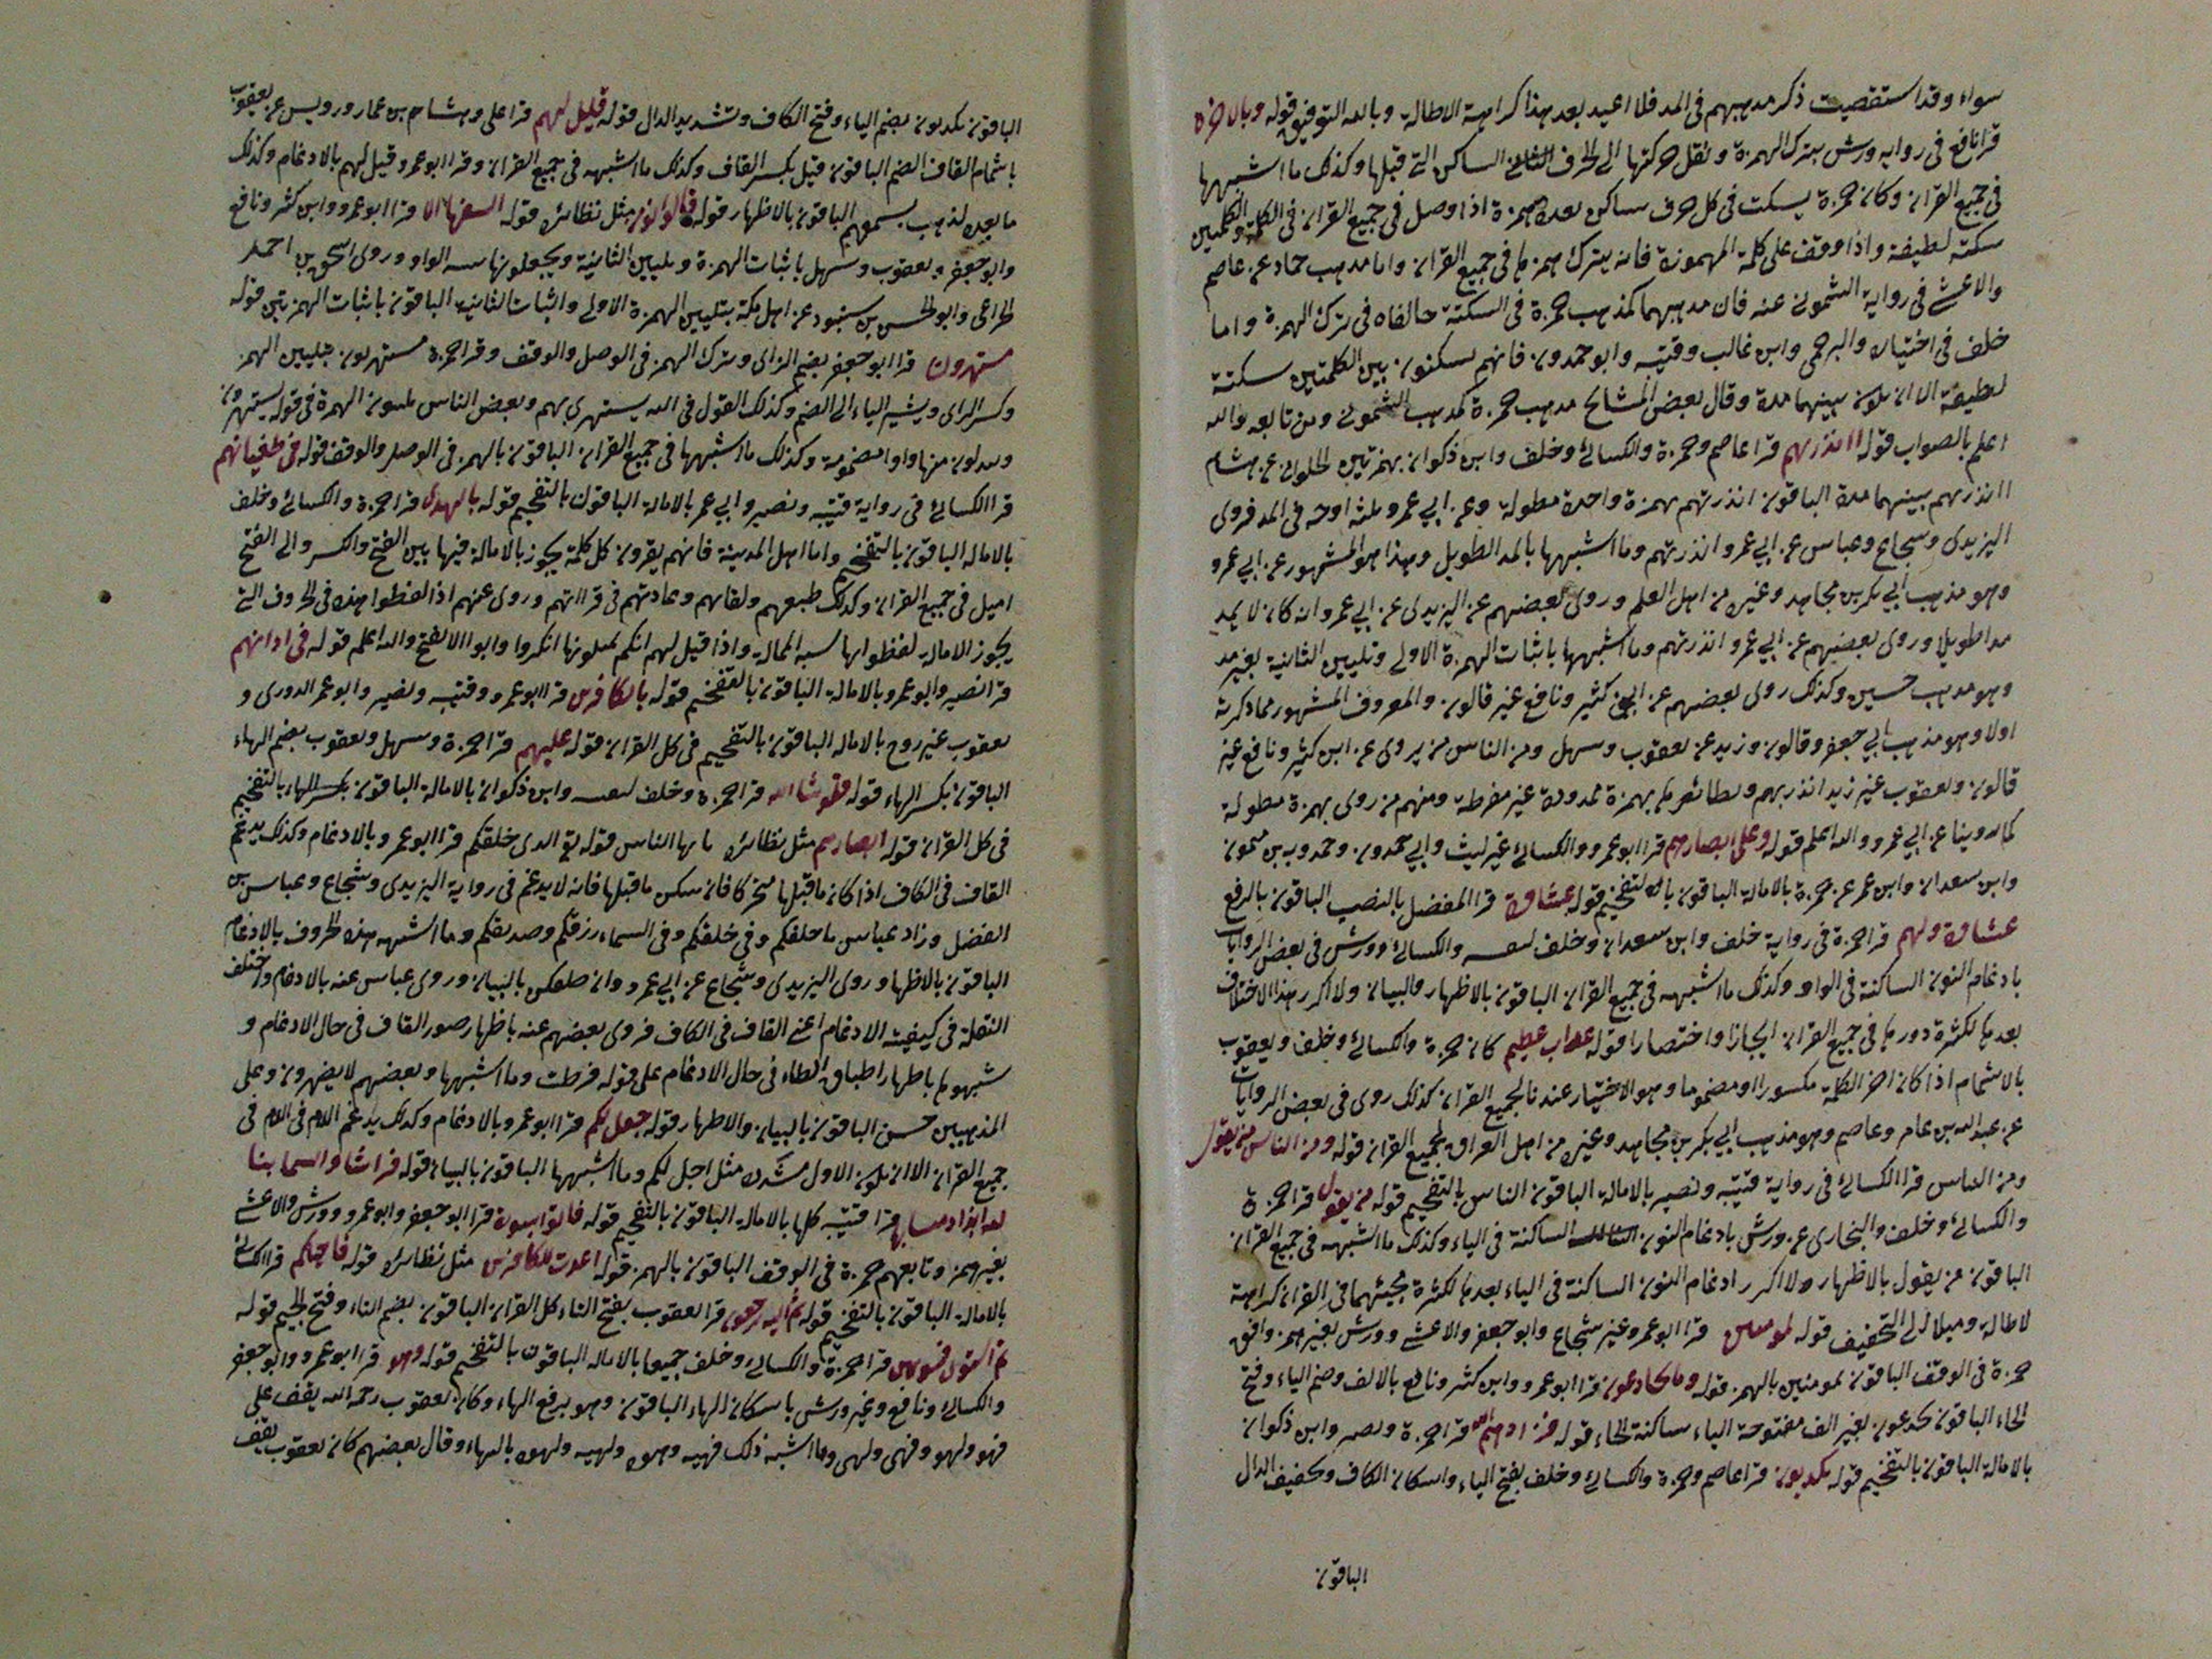 سواء وقد استقصيت ذكر مذهبهم في المد فلا اعيد بعد هذا كراهية الاطالة وبالله التوفيق قوله وبالاخرة
قرا نافع في رواية ورش بترك الهمزة ونقل حركتها الى الحرف الساكن التي قبلها وكذلك ما اشبهها
في جميع القران وكان حمزة يسكت في كل حرف ساكن بعده همزة اذا وصل في جميع القران في الكلمة والكلمتين
سكتة لطيفة واذا وقف على كلمة المهموزة فانه يترك همزها في جميع القران واما مذهب حماد عن عاصم
والاعشى في رواية الشموني عنه فان مذهبهما كمذهب حمزة في السكتة خالفاه في ترك الهمزة واما
خلف في اختياره والبرجمي وابن غالب وقتيبه وابو حمدون فانهم يسكتون بين الكلمتين سكتة
لطيفة الا ان يكون بينهما مدة وقال بعض المشايخ مذهب حمزة كمذهب الشموني ومن تابعه والله
اعلم بالصواب قوله اانذرتهم قرا عاصم وحمزة والكسائي وخلف وابن ذكوان بهمزتين الحلواني عن هشام
اانذرتهم بينهما مدة الباقون انذرتهم بهمزة واحدة مطولة وعن ابي عمرو ثلثة اوجه في المد فروى
اليزيدي وشجاع وعباس عن ابي عمرو انذرتهم وما اشبهها بالمد الطويل وهذا هو المشهور عن ابي عمرو
وهو مذهب ابي بكر بن مجاهد وغيره من اهل العلم وروى بعضهم عن اليزيدي عن ابي عمرو انه كان لا يمد
مدا طويلا وروى بعضهم عن ابي عمرو انذرتهم وما اشبهها باثبات الهمزة الاولى وتليين الثانية بغير مد
وهو مذهب حسين وكذلك روى بعضهم عن ابن كثير ونافع غير قالون والمعروف المشهور ما ذكرته
اولا وهو مذهب ابي جعفر وقالون وزيد عن يعقوب وسهل ومن الناس من يروي عن ابن كثير ونافع غير
قالون ويعقوب غير زيد انذرتهم ونظائرها بهمزة ممدودة غير مفرطة ومنهم من روى بهمزة مطولة
كما روينا عن ابي عمرو والله اعلم قوله وعلى ابصارهم قرا ابو عمرو والكسائي غير ليث وابي حمدون وحمدويه بن ميمون
وابن سعدان وابن عمر عن حمزة بالامالة الباقون بالتفخيم قوله غشاوة قرا المفضل بالنصب الباقون بالرفع
غشاوة ولهم قرا حمزة في رواية خلف وابن سعدان وخلف لنفسه والكسائي وورش في بعض الروايات
بادغام النون الساكنة في الواو وكذلك ما اشبهه في جميع القران الباقون بالاظهار والبيان ولا اكرر هذا الاختلاف
بعدها لكثرة دورها في جميع القران ايجازا واختصارا قوله عذاب عظيم كان حمزة والكسائي وخلف ويعقوب
بالاشمام اذا كان اخر الكلمة مكسورا او مضموما وهو الاختيار عندنا لجميع القران كذلك روى في بعض الروايات
عن عبد الله بن عامر وعاصم وهو مذهب ابي بكر بن مجاهد وغيره من اهل العراق لجميع القران قوله ومن الناس من يقول
ومن الناس قرا الكسائي في رواية قتيبه ونصير بالامالة الباقون الناس بالتفخيم قوله من يقول قرا حمزة
والكسائي وخلف والبخاري عن ورش بادغام النون الساكنة في الياء وكذلك ما اشبهه في جميع القران
الباقون من يقول بالاظهار ولا اكرر ادغام النون الساكنة في الياء بعدها لكثرة مجيئهما في القران كراهية
لاطالة وميلا الى التخفيف قوله بمومنين قرا ابو عمرو غير شجاع وابو جعفر والاعشى وورش بغير همز وافق
حمزة في الوقف الباقون بمومنين بالهمز قوله وما يخادعون قرا ابو عمرو وابن كثير ونافع بالالف وضم الياء وفتح
الخاء الباقون يخدعون بغير الف مفتوحة الياء ساكنة الخاء قوله فزادهم الله قرا حمزة ونصير وابن ذكوان
بالامالة الباقون بالتفخيم قوله يكذبون قرا عاصم وحمزة والكسائي وخلف بفتح الياء واسكان الكاف وتخفيف الذال
الباقون
الباقون يكذبون بضم الياء وفتح الكاف وتشديد الذال قوله قيل لهم قرا علي وهشام بن عمار ورويس عن يعقوب
باشمام القاف الضم الباقون قيل بكسر القاف وكذلك ما اشبهه في جميع القران وقرا ابو عمرو قيل لهم بالادغام وكذلك
ما بعده لذهب بسمعهم الباقون بالاظهار قوله قالوا انؤمن مثل نظائره قوله السفهاء الا قرا ابو عمرو وابن كثير ونافع
وابو جعفر ويعقوب وسهل باثبات الهمزة وتليين الثانية ويجعلونها شبه الواو وروى اسحق بن احمد
الخزاعي وابو الحسن بن شنبود عن اهل مكة بتليين الهمزة الاولى واثبات الثانية الباقون باثبات الهمزتين قوله
مستهزون قرا ابو جعفر بضم الزاي وترك الهمز في الوصل والوقف وقرا حمزة مستهزون بتليين الهمز
وكسر الزاي ويشير الياء الى الضم وكذلك القول في الله يستهزي بهم وبعض الناس يلينون الهمزة في قوله يستهزون
ويبدلون منها واوا مضمومة وكذلك ما اشبهها في جميع القران الباقون بالهمز في الوصل والوقف قوله في طغيانهم
قرا الكسائي في رواية قتيبه ونصير وابي عمر بالامالة الباقون بالتفخيم قوله بالهدى قرا حمزة والكسائي وخلف
بالاماله الباقون بالتفخيم واما اهل المدينة فانهم يقرون كل كلمة يجوز بالامالة فيها بين الفتح والكسر والى الفتح
اميل في جميع القران وكذلك طبعهم ولغاتهم وعادتهم في قراتهم وروى عنهم اذا لفظوا بهذه في الحروف التي
يجوز الامالة لفظوا بها شبه الممالة واذا قيل لهم انكم تميلونها انكروا وابوا الا الفتح والله اعلم قوله في اذانهم
قرا نصير وابو عمرو بالامالة الباقون بالتفخيم قوله بالكافرين قرا ابو عمرو وقتيبه ونصير وابو عمر الدوري و
يعقوب غير روح بالاماله الباقون بالتفخيم في كل القران قوله عليهم قرا حمزة وسهل ويعقوب بضم الهاء
الباقون بكسر الهاء قوله ولو شا الله قرا حمزة وخلف لنفسه وابن ذكوان بالامالة الباقون بالتفخيم
في كل القران قوله ابصارهم مثل نظائره يا يها الناس قوله الذي خلقكم قرا ابو عمرو بالادغام وكذلك يدغم
القاف في الكاف اذا كان ما قبلها متحركا فان سكن ما قبلها فانه لا يدغم في رواية اليزيدي وشجاع وعباس بن
الفضل وزاد عباس ما خلقكم وفي خلقكم وفي السماء رزقكم وصديقكم وما اشبهه هذه الحروف بالادغام
الباقون بالاظهار وروى اليزيدي وشجاع عن ابي عمرو ان طلقكن بالبيان وروى عباس عنه بالادغام واختلف
النقلة في كيفية الادغام اعني القاف في الكاف فروى بعضهم عنه باظهار صور القاف في حال الادغام و
شبهوها باظهار اطباق الطاء في حال الادغام على قوله فرطت وما اشبهها وبعضهم لا يظهرون وعلى
المذهبين حسن الباقون بالبيان والاظهار قوله جعل لكم قرا ابو عمرو بالادغام وكذلك يدغم اللام في اللام في
جميع القران الا ان يكون الاول مشددا مثل احل لكم وما اشبهها الباقون بالبيان قوله فراشا والسما بنا
قرا قتيبه كلها بالامالة الباقون بالتفخيم قوله فاتوا بسورة قرا ابو جعفر وابو عمرو وورش والاعشى
بغير همز وتابعهم حمزة في الوقف الباقون بالهمز قوله اعدت للكافرين مثل نظائره قوله فاحياكم قرا الكسائي
بالامالة الباقون بالتفخيم قوله ثم اليه ترجعون قرا يعقوب بفتح التاء كل القران الباقون بضم التاء وفتح الجيم قوله
ثم استوى فسويهن قرا حمزة والكسائي وخلف جميعا بالاماله الباقون بالتفخيم قوله وهو قرا ابو عمرو وابو جعفر
والكسائي ونافع غير ورش باسكان الهاء الباقون وهو برفع الهاء وكان يعقوب رحمه الله يقف على
فهو ولهو وفهي ولهي وما اشبه ذلك فهيه وهوه ولهيه ولهوه بالهاء وقال بعضهم كان يعقوب يقف